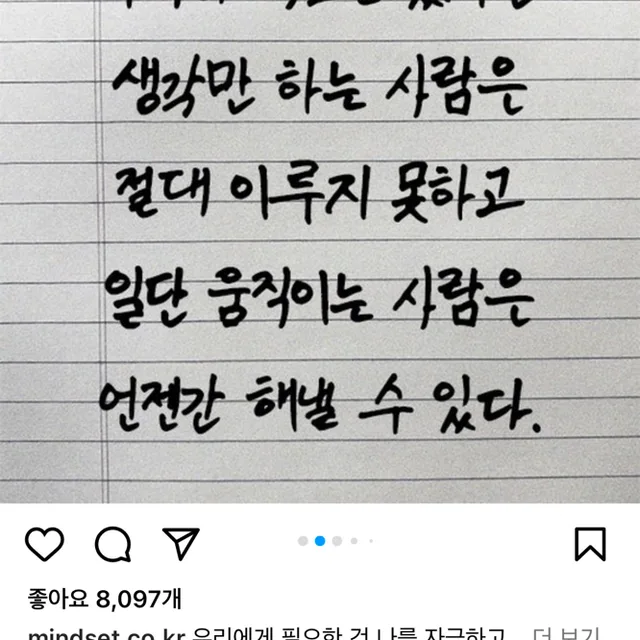 생각만 하는 사람은
절대 이루지 못하고
일단 움직이는 사람은
언젠간 해낼 수 있다.
좋아요 8,097개
mindset.co.kr 우리에게 필요한 건 나를 자극하고... 더 보기